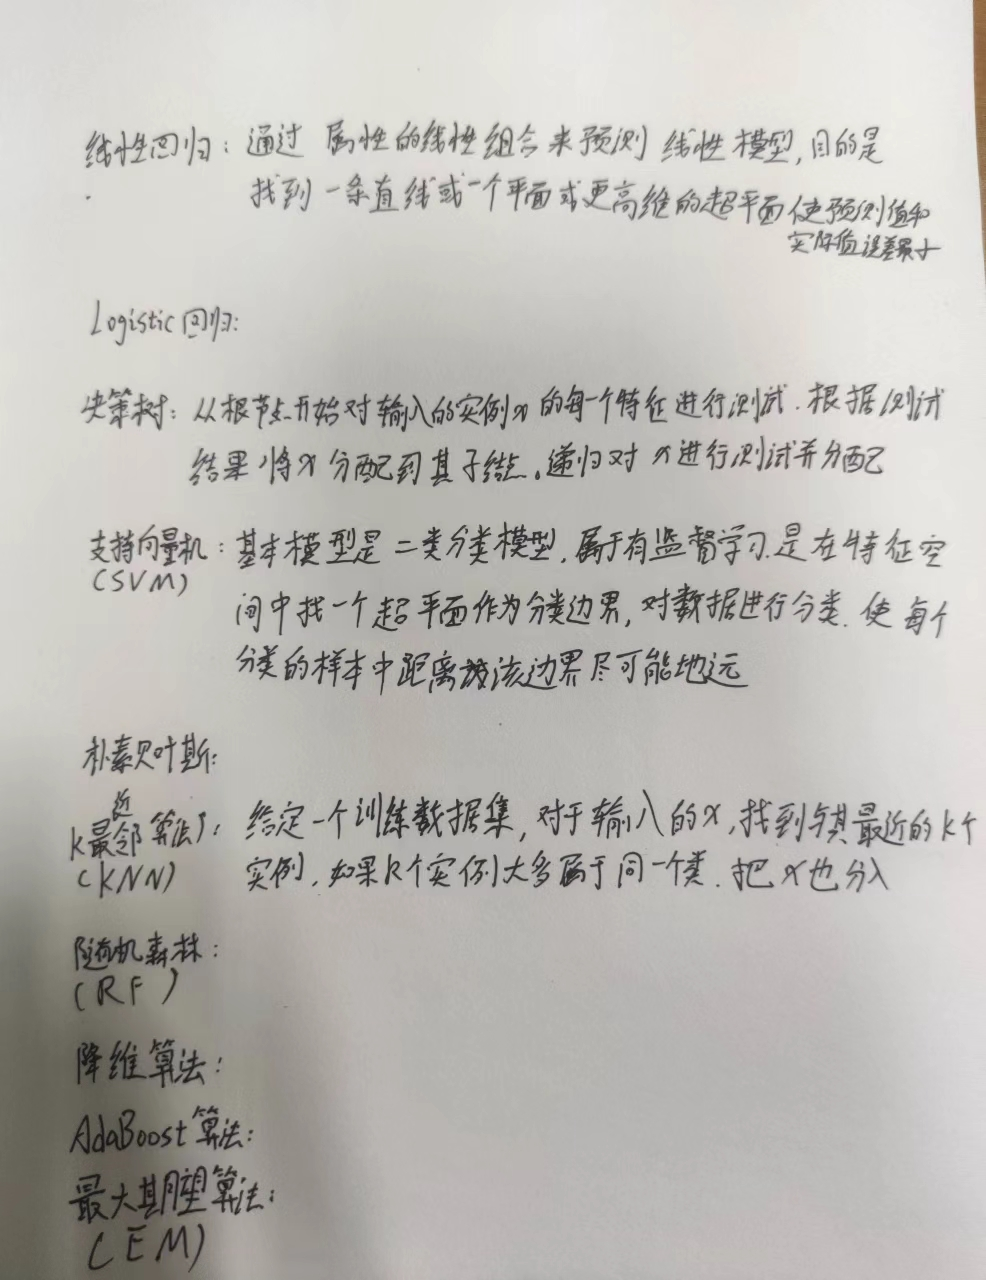 线性回归：通过 属性的线性组合来预测 线性模型，目的是
找到一条直线或一个平面或更高维的超平面使预测值和
实际值误差最小
Logistic回归：
决策树：从根节点开始对输入的实例x的每一个特征进行测试．根据测试
结果将x分配到其子结点。递归对x进行测试并分配
支持向量机：基本模型是二类分类模型，属于有监督学习．是在特征空
(SVM)
间中找一个超平面作为分类边界，对数据进行分类．使每个
分类的样本中距离该边界尽可能地远
朴素贝叶斯：
近
k最邻算法：给定一个训练数据集，对于输入的x，找到与其最近的k个
(KNN) 实例，如果k个实例大多属于同一个类．把x也分入
随机森林：
(RF)
降维算法：
AdaBoost算法：
最大期望算法：
(EM)